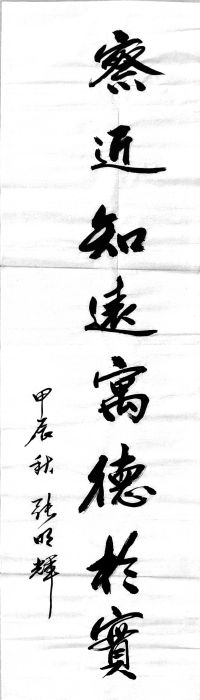 察近知遠寓德於實
甲辰秋張明輝